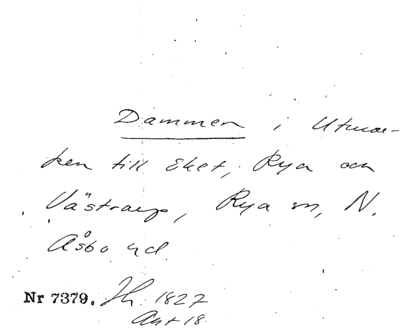 Dammen i Utmar-
ken till Eket, Rya och
Västraup, Rya sn, N.
Åsbo hd.
Nr 7379. Jh. 1827
Akt 18.